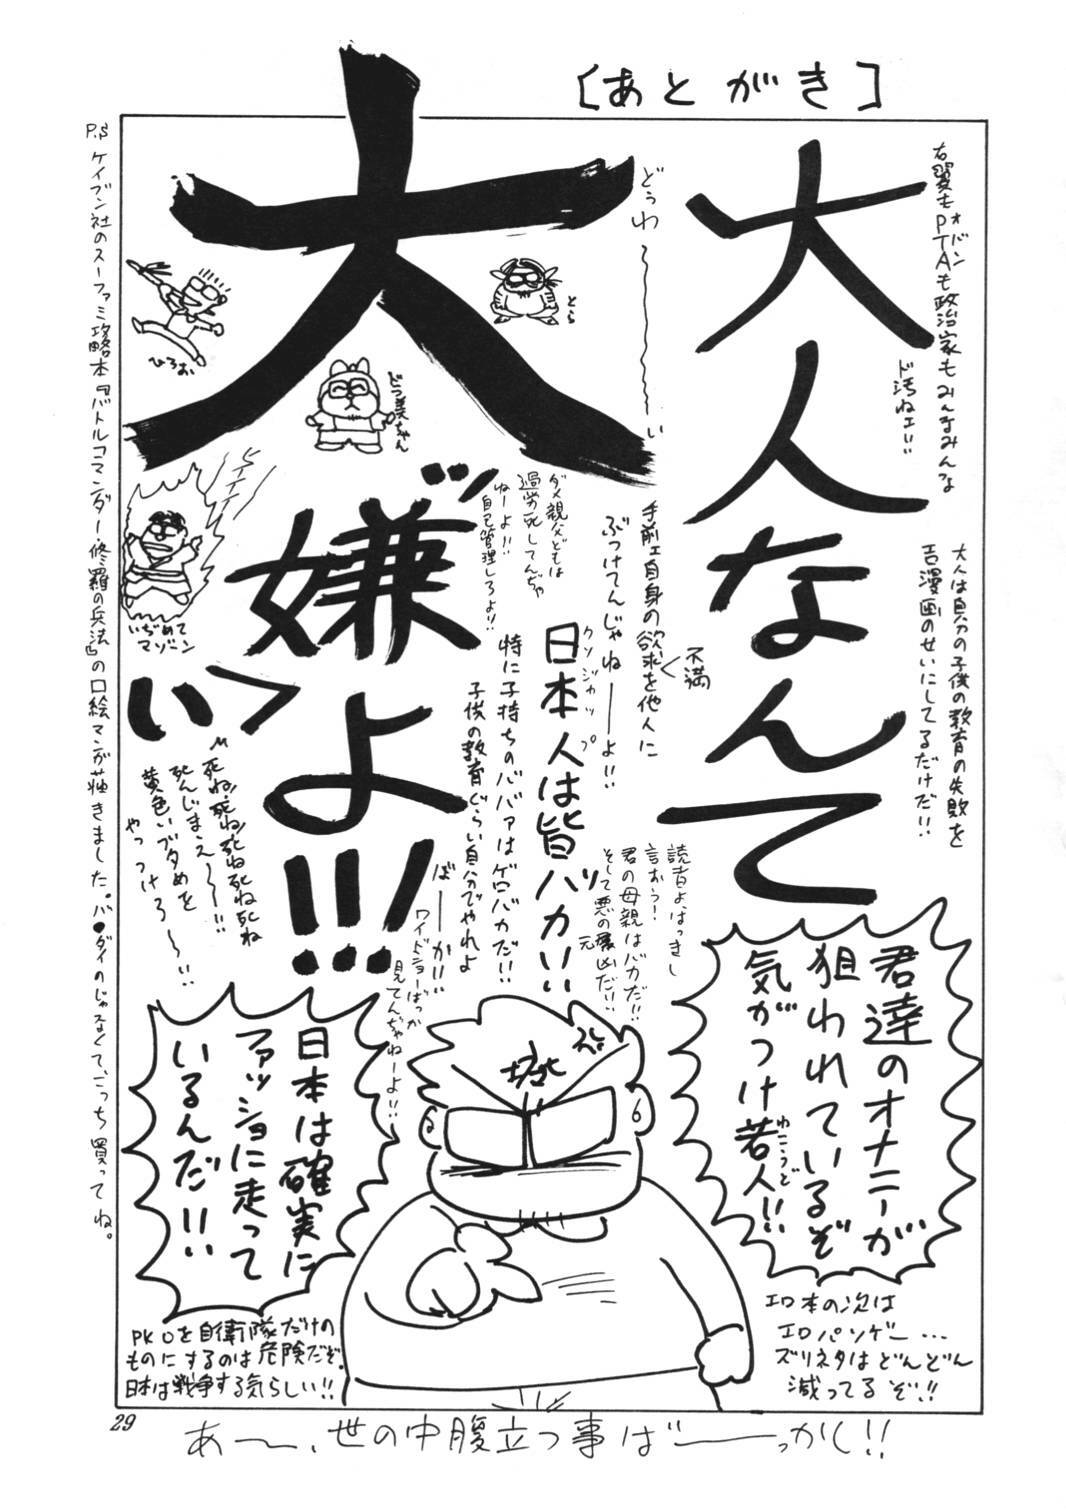 ［あとがき］
大人なんて
大ッ嫌いーっ
よ！！！
どぅわ〜〜〜い
右翼もPTAも政治家もみんなみんな
オバン
ド汚ねェ！！
大人は自分の子供の教育の失敗を
エロ漫画のせいにしてるだけだ！！
手前ェ自身の欲求を他人に
不満
ぶつけてんじゃねーーよ！！
日本人は皆バカ！！
クソジャップ
ダメ親父どもは
過労死してんぢゃ
ねーよ！！
自己管理しろよ！！
特に子持ちのババァはゲロバカだ！！
子供の教育ぐらい自分でやれよ
ばーーか！！
ワイドショーばっか
見てんぢゃねーよ！！
読者よはっきし
言おう！
君の母親はバカだ！！
そして悪の元凶だ！！
とら
ひろお
どつ美ちゃん
いぢめて
マゾーン
死ね死ね死ね死ね死ね
死んじまえ〜〜！！
黄色いブタめを
やっつけろ〜〜！！
君達のオナニーが
狙われているぞ
気がつけ若人！！
わこうど
エロ本の次は
エロパソゲー…
ズリネタはどんどん
減ってるぞ！！
日本は確実に
ファッショに走って
いるんだ！！
PKOを自衛隊だけの
ものにするのは危険だぞ。
日本は戦争する気らしい！！
P.S ケイブン社のスーファミ攻略本『バトルコマンダー・修羅の兵法』の口絵マンガ描きました。バ●ダイのじゃなくて、こっち買ってね。
29
あ〜〜、世の中腹立つ事ばーーっかし！！